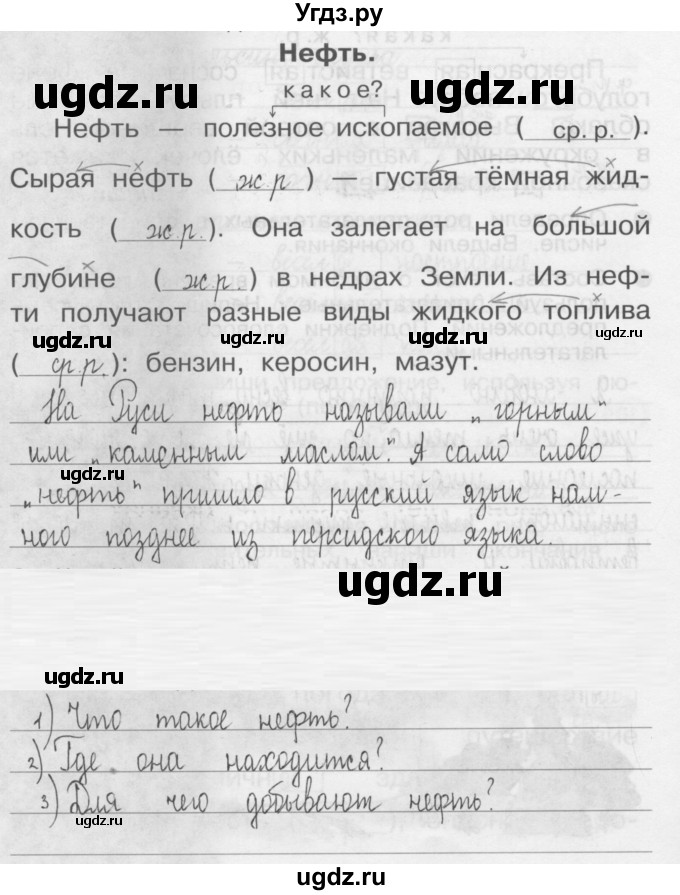 Угдз.ру
Нефть.
ugdz.ru
какое?
ugdz.ru
Нефть — полезное ископаемое ( ср. р. ).
Сырая нефть ( ж.р ) — густая тёмная жид-
кость ( ж.р. ). Она залегает на большой
глубине ( ж.р. ) в недрах Земли. Из неф-
ти получают разные виды жидкого топлива
ugdz.ru
ugdz.ru
( ср.р. ): бензин, керосин, мазут.
На Руси нефть называли „горным“
или „каменным маслом.“ А само слово
ugdz.ru
„нефть“ пришло в русский язык нам-
ного позднее из персидского языка.
ugdz.ru
ugdz.ru
1) Что такое нефть?
2) Где она находится?
3) Для чего добывают нефть?
ugdz.ru
ugdz.ru
ugdz.ru